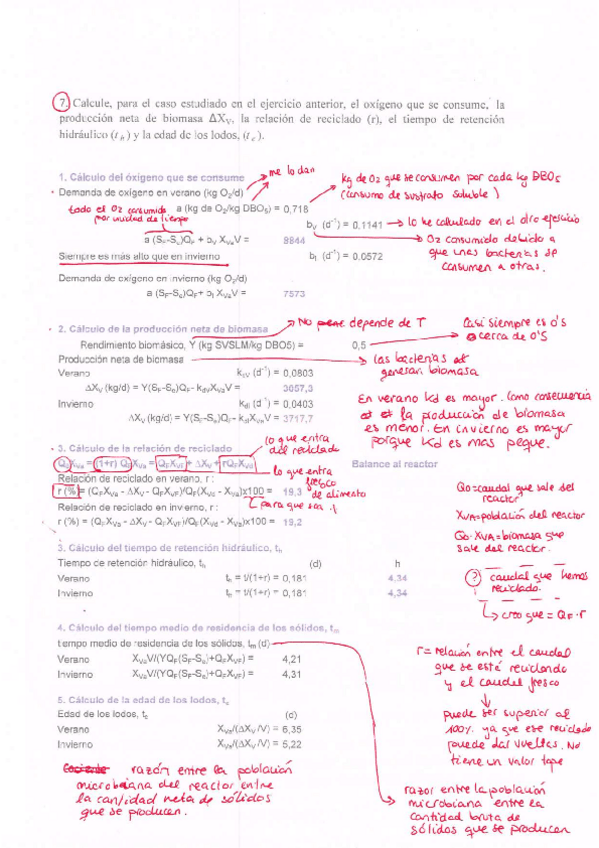 7. Calcule, para el caso estudiado en el ejercicio anterior, el oxígeno que se consume, la
producción neta de biomasa ΔXV, la relación de reciclado (r), el tiempo de retención
hidráulico (t h) y la edad de los lodos, (t c).
1. Cálculo del óxigeno que se consume
me lo dan
Demanda de oxígeno en verano (kg O2/d)
kg de O2 que se consumen por cada kg DBO5
(consumo de sustrato soluble)
todo el O2 consumido
por unidad de tiempo
a (kg de O2/kg DBO5) = 0,718
bv (d-1) = 0,1141
lo he calculado en el otro ejercicio
a (SF-Se)QF + bV XVaV = 9844
O2 consumido debido a
que unas bacterias se
consumen a otras.
Siempre es más alto que en invierno
bI (d-1) = 0,0572
Demanda de oxígeno en invierno (kg O2/d)
a (SF-Se)QF + bI XVaV = 7573
2. Cálculo de la producción neta de biomasa
No depende de T
Casi siempre es 0'5
o cerca de 0'5
Rendimiento biomásico, Y (kg SVSLM/kg DBO5) = 0,5
Producción neta de biomasa
las bacterias
generan biomasa
Verano kdV (d-1) = 0,0803
ΔXV (kg/d) = Y(SF-Se)QF- kdVXVaV = 3057,3
Invierno kdI (d-1) = 0,0403
ΔXV (kg/d) = Y(SF-Se)QF- kdIXVaV = 3717,7
En verano Kd es mayor. Como consecuencia
la producción de biomasa
es menor. En invierno es mayor
porque Kd es mas peque.
3. Cálculo de la relación de reciclado
lo que entra
del reciclado
Q0XVa = (1+r) QFXVa = QFXVF + ΔXV + rQFXVd
Balance al reactor
Relación de reciclado en verano, r :
lo que entra
fresco
de alimento
r (%) = (QFXVa - ΔXV - QFXVF)/QF(XVd - XVa)x100 = 19,3
Relación de reciclado en invierno, r :
para que sea
r (%) = (QFXVa - ΔXV - QFXVF)/QF(XVd - XVa)x100 = 19,2
Qo=caudal que sale del
reactor
XVA=población del reactor
Qo·XVA=biomasa que
sale del reactor.
3. Cálculo del tiempo de retención hidráulico, th
Tiempo de retención hidráulico, th (d) h
Verano th = t/(1+r) = 0,181 4,34
Invierno th = t/(1+r) = 0,181 4,34
? caudal que hemos
reciclado.
creo que = QF·r
4. Cálculo del tiempo medio de residencia de los sólidos, tm
tiempo medio de residencia de los sólidos, tm (d)
Verano XVaV/(YQF(SF-Se)+QFXVF) = 4,21
Invierno XVaV/(YQF(SF-Se)+QFXVF) = 4,31
r= relación entre el caudal
que se está reciclando
y el caudal fresco
puede ser superior al
100% ya que ese reciclado
puede dar vueltas. No
tiene un valor tope
5. Cálculo de la edad de los lodos, tc
Edad de los lodos, tc (d)
Verano XVa/(ΔXV /V) = 6,35
Invierno XVa/(ΔXV /V) = 5,22
razón entre la población
microbiana del reactor entre
la cantidad neta de sólidos
que se producen.
razor entre la población
microbiana entre la
cantidad bruta de
sólidos que se producen